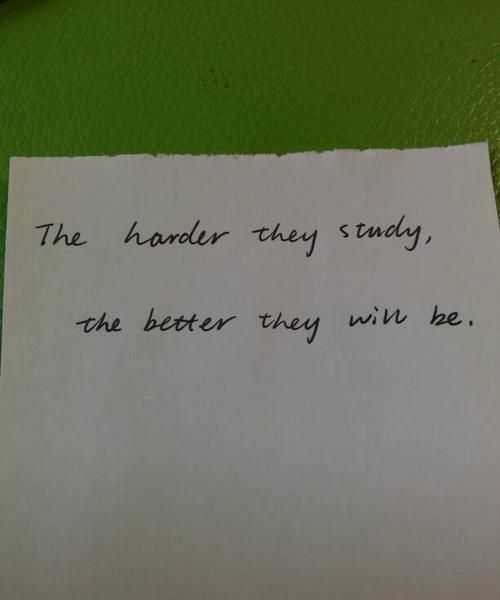 The harder they study,
the better they will be.